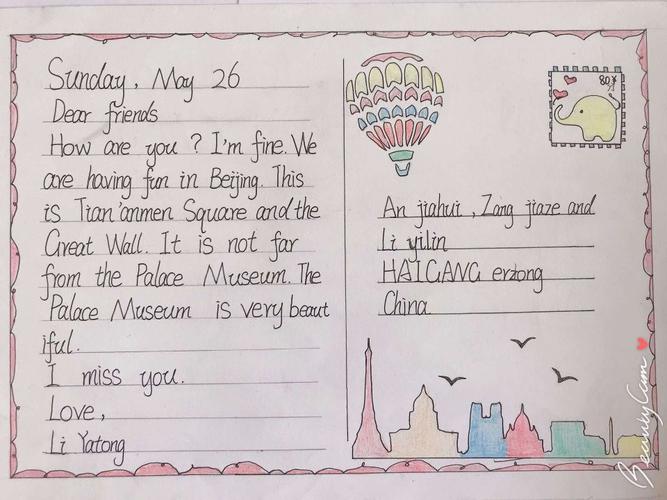 Sunday, May 26
Dear friends
How are you? I'm fine. We
are having fun in Beijing. This
is Tian'anmen Square and the
Great Wall. It is not far
from the Palace Museum. The
Palace Museum is very beaut
iful.
I miss you.
Love,
Li Yatong
80¥
An jiahui, Zang jiaze and
Li yilin
HAIGANG erzong
China
BeautyCam